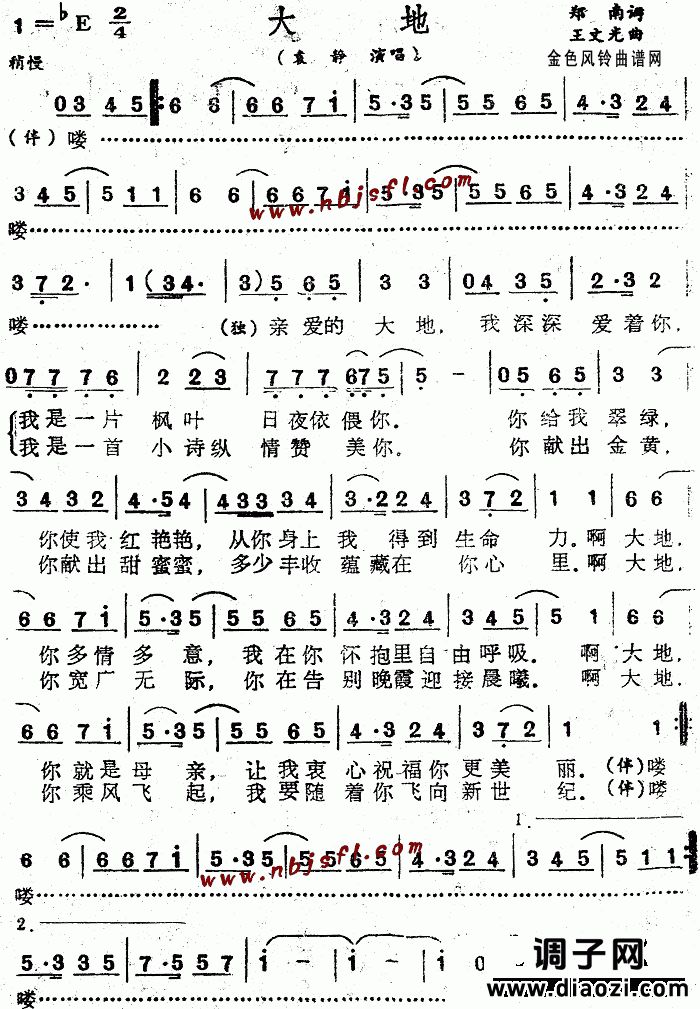 1=♭E 2/4 大 地 郑 南词
王文光曲
稍慢 (袁 静 演唱) 金色风铃曲谱网
03 45 6 6 6671 5·35 5565 4·324
(伴)喽
3 45 5 11 6 6 6671 5·35 5565 4·324
www.nbjsfl.com
喽
372· 1(34· 3)565 3 3 04 35 2·32
喽 (独)亲 爱的 大 地, 我深深 爱着你,
077 76 2 23 777 675 5 - 0565 3 3
我是一片 枫叶 日夜依偎你. 你给我 翠绿,
我是一首 小诗纵 情赞 美你. 你献出 金黄,
3432 4·54 43334 3·224 372 1 1 6 6
你使我 红艳艳, 从你身上我 得到 生命 力.啊 大地,
你献出 甜蜜蜜, 多少丰收 蕴藏在 你心 里.啊 大地,
6671 5·35 5565 4·324 345 5 1 6 6
你多情多 意, 我在你 怀抱里自由呼吸. 啊 大地,
你宽广无 际, 你在告 别晚霞迎接晨曦. 啊 大地,
6671 5·35 5565 4·324 372 1 1
你就是母 亲, 让我衷 心祝福你更美 丽.(伴)喽
你乘风飞 起, 我要随 着你飞向新世 纪.(伴)喽
1.
6 6 6671 5·35 5565 4·324 345 511
www.nbjsfl.com
喽
2.
5·335 7·557 i - i - i 0
喽
调子网
www.diaozi.com